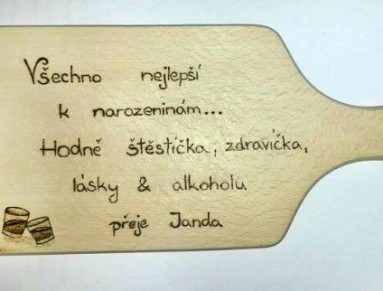 Všechno nejlepší
k narozeninám...
Hodně štěstíčka, zdravíčka,
lásky & alkoholu
přeje Janda